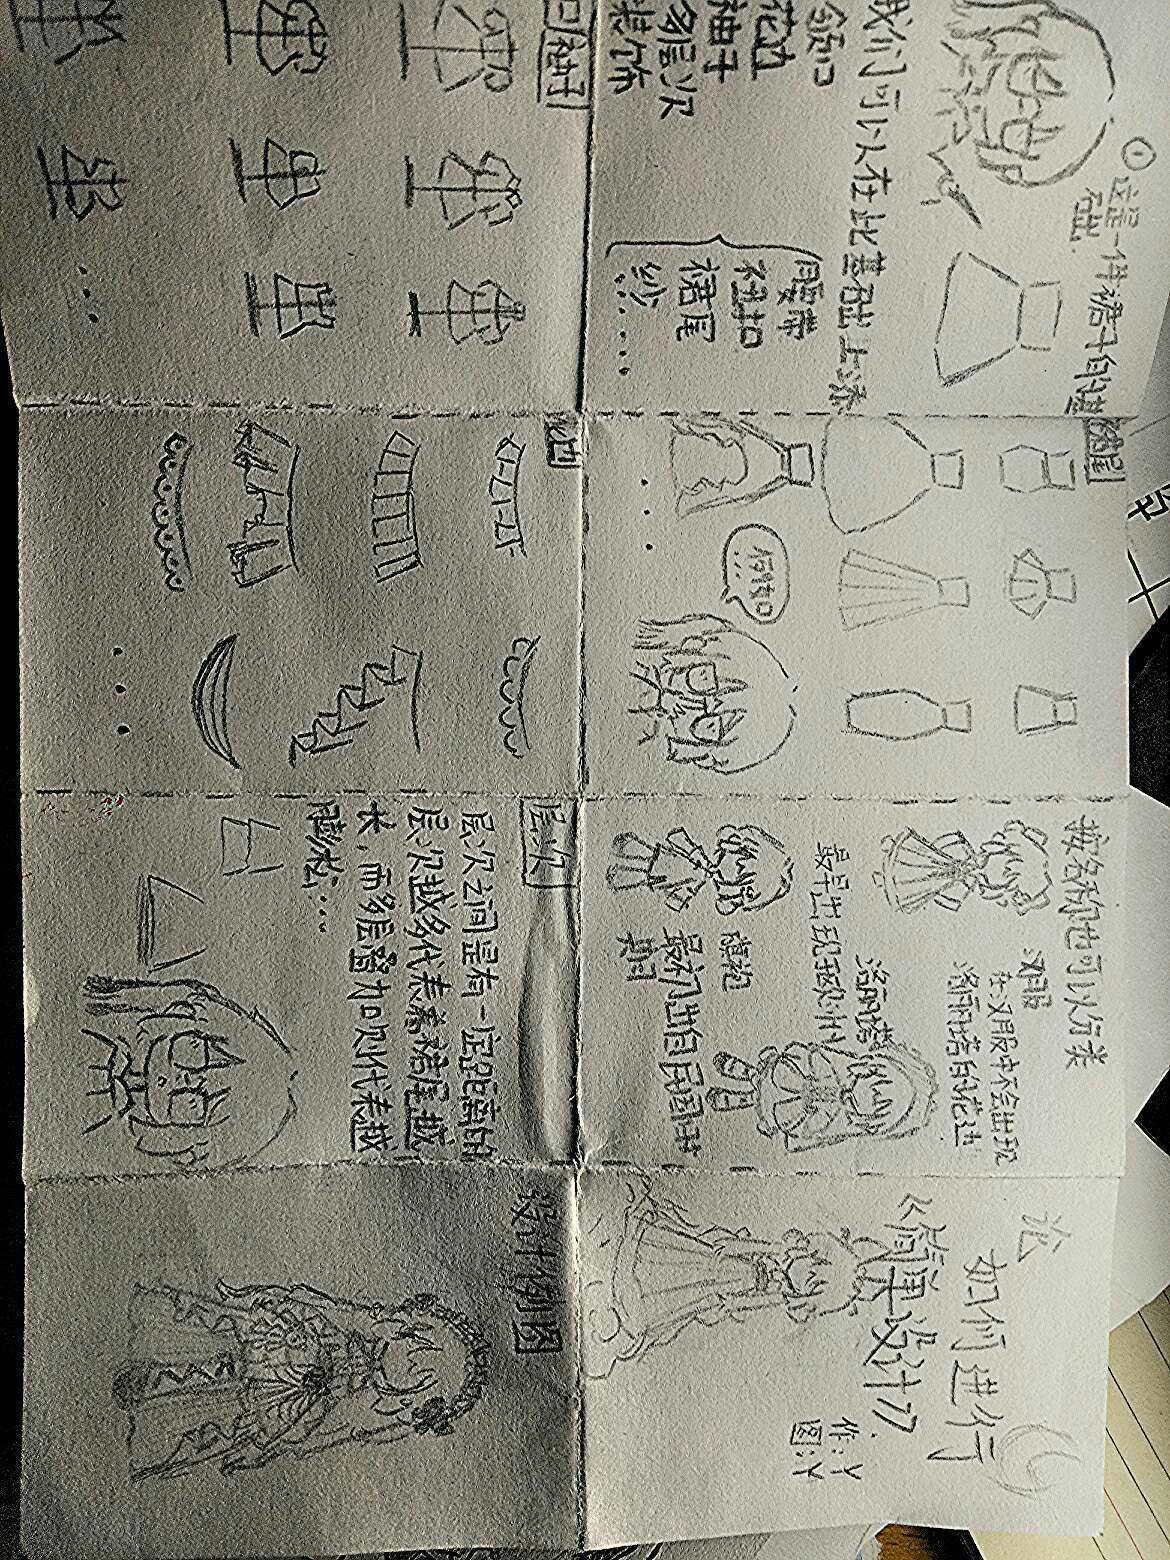 论
如何进行
《简单设计》
作:丫
图:丫
按名称也可以分类
汉服
在汉服中不会出现
洛丽塔的花边
洛丽塔
最早出现于欧州
旗袍
最初出自民国时
期
裙尾
何如
①这是一件裙子的基
础
我们可以在此基础上添
领口
花边
袖子
多层次
装饰
腰带
衽扣
裙尾
纱……
袖子
花边
层次
层次之间是有一定距离的
层次越多代表着裙尾越
长,而多层叠加则代表越
膨松……
设计例图